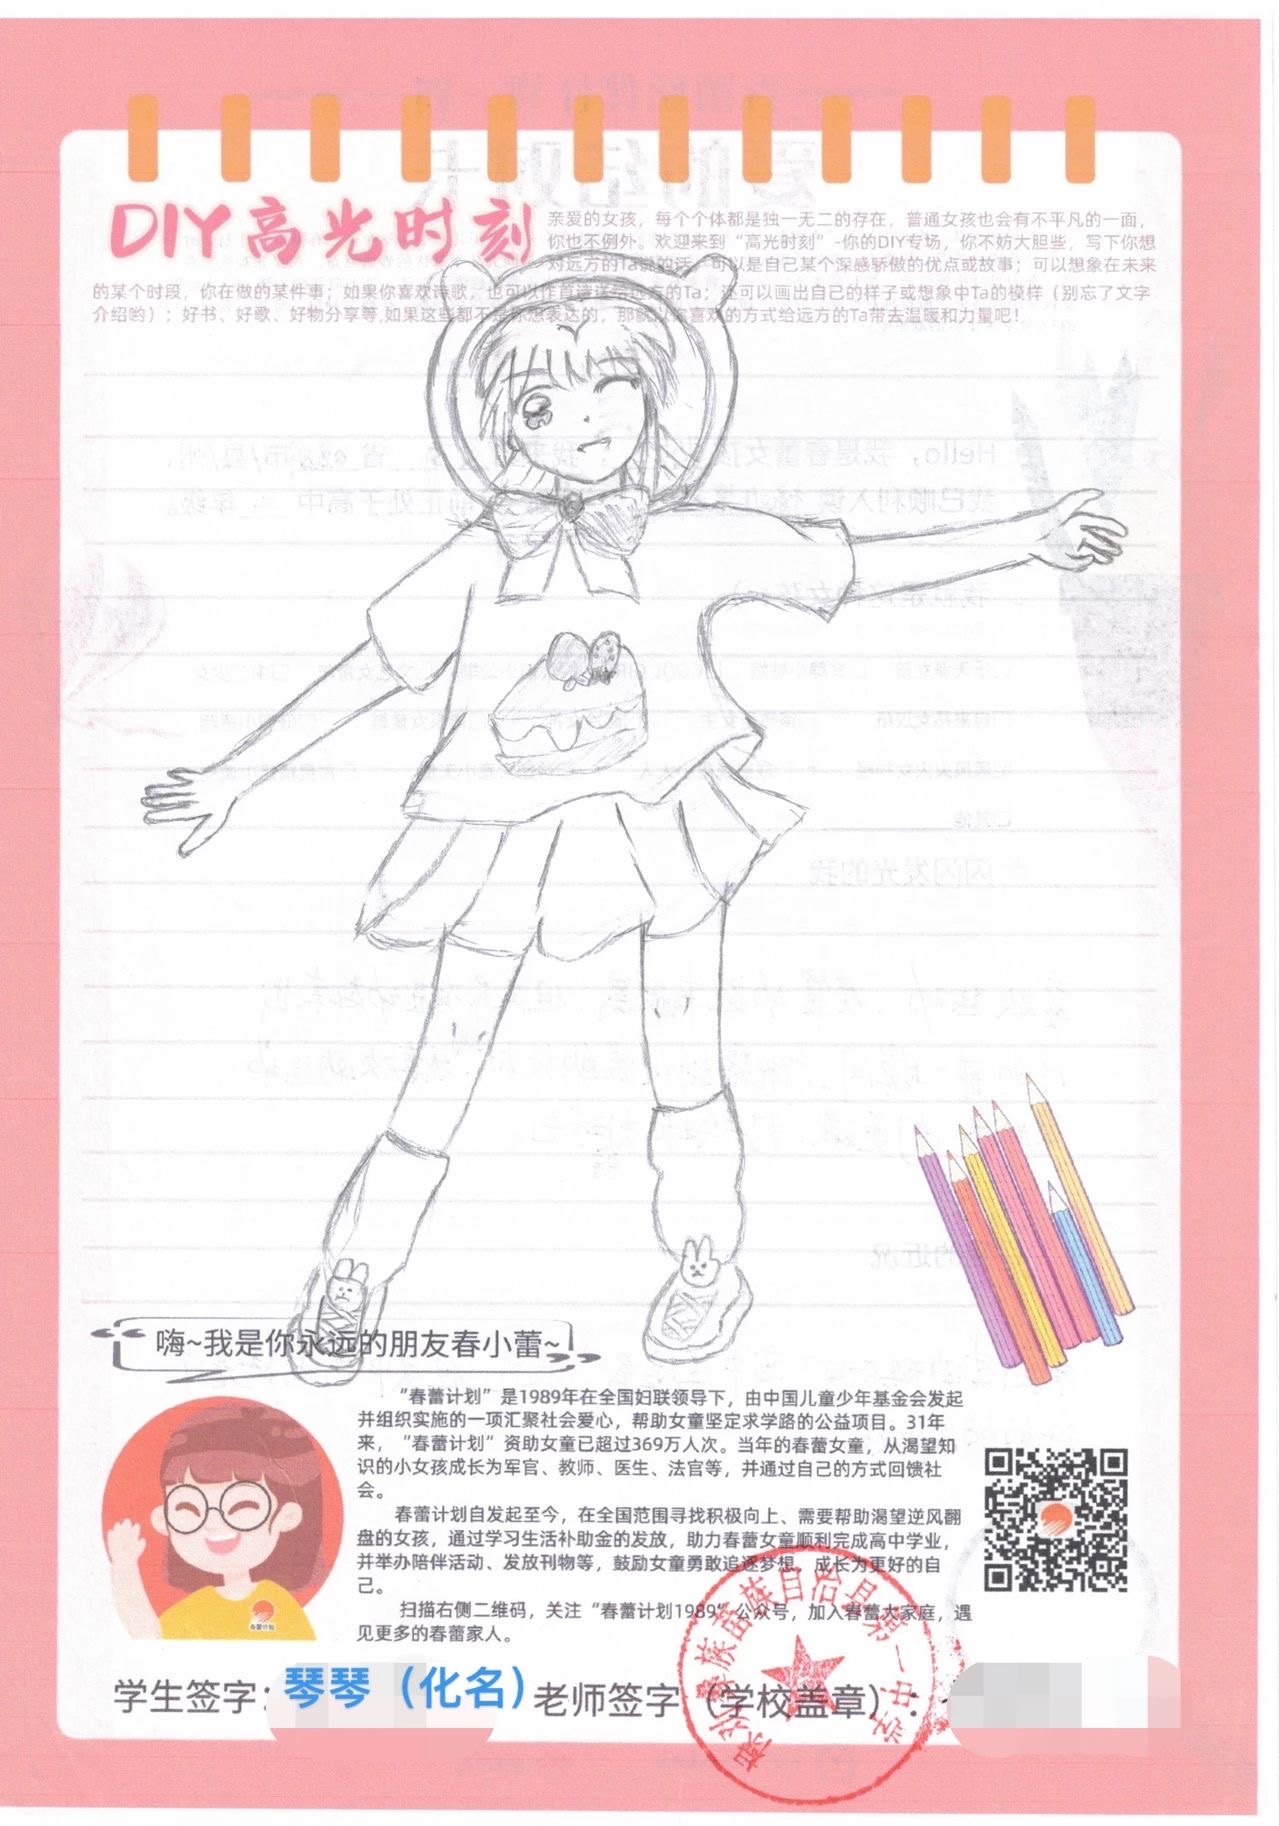 DIY高光时刻
亲爱的女孩，每个个体都是独一无二的存在，普通女孩也会有不平凡的一面，
你也不例外。欢迎来到“高光时刻”-你的DIY专场，你不妨大胆些，写下你想
对远方的Ta说的话，可以是自己某个深感骄傲的优点或故事；可以想象在未来
的某个时段，你在做的某件事；如果你喜欢诗歌，也可以作首诗送给远方的Ta；还可以画出自己的样子或想象中Ta的模样（别忘了文字
介绍哟）；好书、好歌、好物分享等,如果这些都不是你想表达的，那就以你喜欢的方式给远方的Ta带去温暖和力量吧！
嗨~我是你永远的朋友春小蕾~
“春蕾计划”是1989年在全国妇联领导下，由中国儿童少年基金会发起
并组织实施的一项汇聚社会爱心，帮助女童坚定求学路的公益项目。31年
来，“春蕾计划”资助女童已超过369万人次。当年的春蕾女童，从渴望知
识的小女孩成长为军官、教师、医生、法官等，并通过自己的方式回馈社
会。
春蕾计划自发起至今，在全国范围寻找积极向上、需要帮助渴望逆风翻
盘的女孩，通过学习生活补助金的发放，助力春蕾女童顺利完成高中学业，
并举办陪伴活动、发放刊物等，鼓励女童勇敢追逐梦想，成长为更好的自
己。
扫描右侧二维码，关注“春蕾计划1989”公众号，加入春蕾大家庭，遇
见更多的春蕾家人。
春蕾计划
学生签字：琴琴（化名）老师签字（学校盖章）：
彝族苗族自治县第一中学